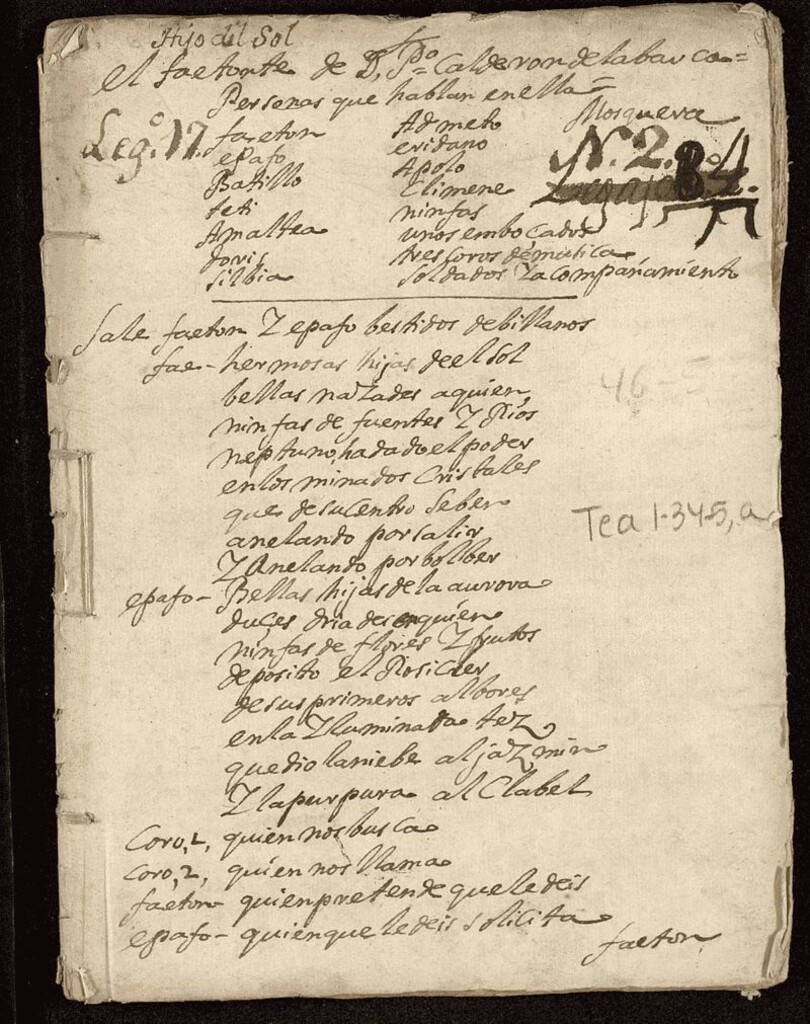 Hijo del Sol
el faetonte de D, Pº Calderon de la barca=
Personas que hablan en ella=
Mosquera
Legº. 17.
N. 2.
84
faeton Admeto
epafo eridano
Batillo Apolo
teti Climene
Amaltea ninfas
doris unos embocados
silbia tres Coros de musica
soldados Zacompañamiento
Sale faeton Z epafo bestidos de billanos
fae- hermosas hijas de el sol
bellas naZades aquien
ninfas de fuentes Z Rios
neptuno, ha dado el poder
en los minados Cristales
que de su Centro Seber
anelando por salir
Z Anelando por bolber
46-5
Tea 1-34-5, a
epafo- Bellas hijas de la aurora
duçes driades enquien
ninfas de flores Z frutos
deposito el Rosicler
de sus primeros albores
en la Zluminada tez
que dio la niebe al jazmin
Z la purpura al Clabel
Coro, 1, quien nos busca
Coro, 2, quien nos llama
faeton- quien pretende que le deis
epafo- quien que le deis solicita
faeton